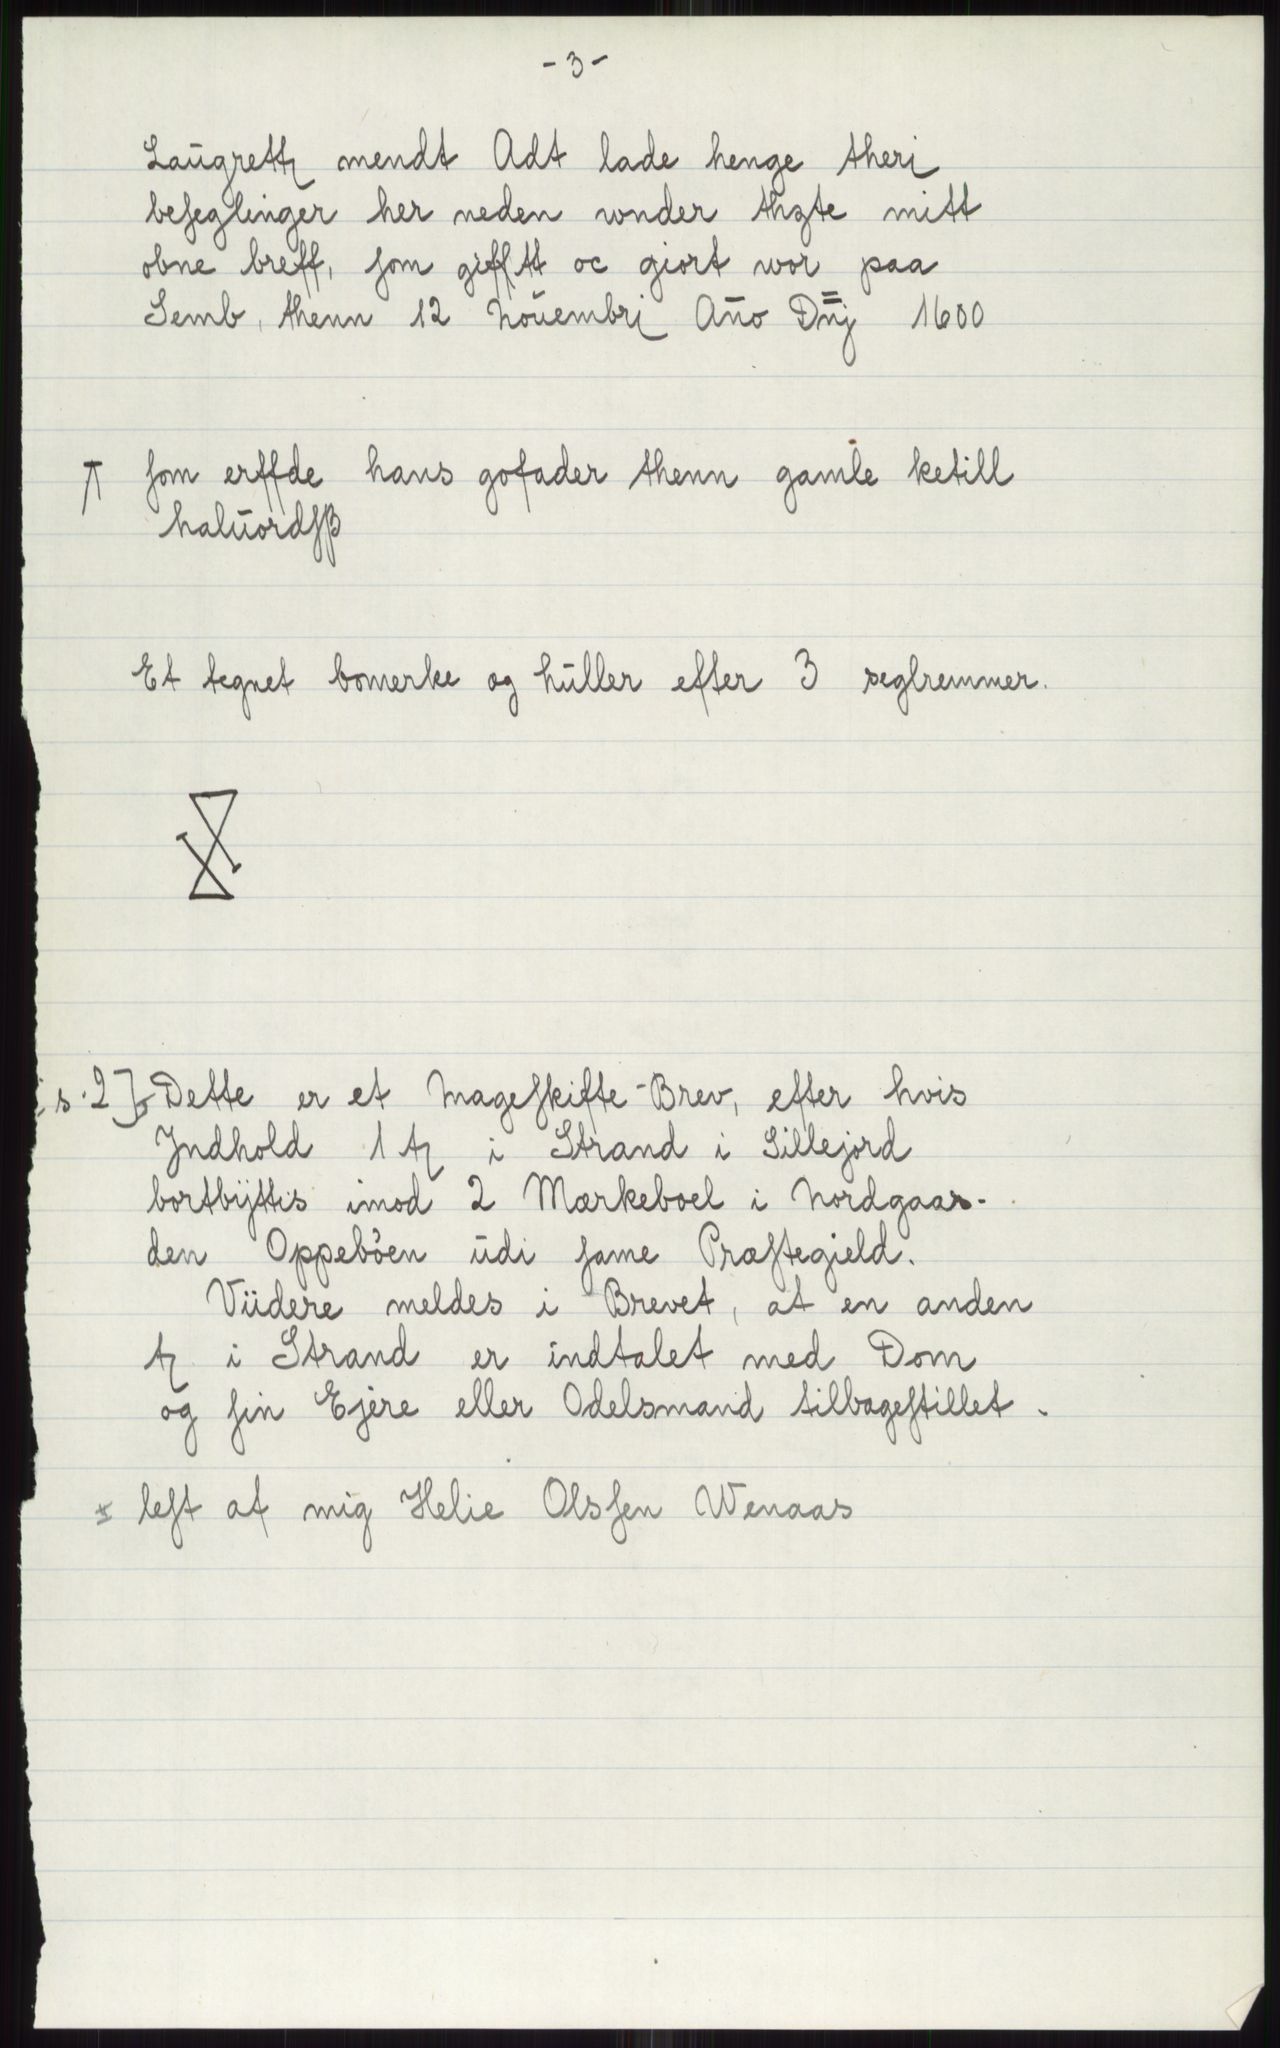 - 3 -
Laŭgrettʒ mendt Adt lade henge theri
beſeglinger her neden wnder thʒte mitt
obne breff, ſom giſſtt oc giort wor paa
Semb, thenn 12 Noŭembrj Año Dñj 1600
⊼ ſom erffde hans gofader thenn gamle ketill
haluordſβ
Et tegnet bomerke og hŭller efter 3 seglremmer.
[s. 2] Dette er et Mageſkifte-Brev, efter hvis
Jndhold 1 tʒ i Strand i Sillejord
bortbÿttis imod 2 Mærkeboel i Nordgaar-
den Oppeböen ŭdi ſame Præſtegield.
Viidere meldes i Brevet, at en anden
tʒ i Strand er indtalet med Dom
og ſin Ejere eller Odelsmand tilbageſtillet.
± leſt af mig Helie Olsſen Wenaas